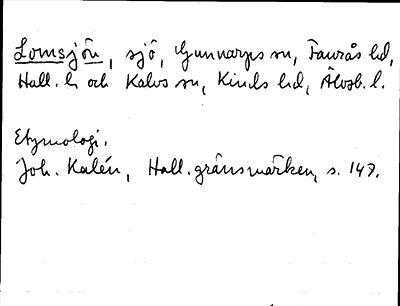 Lomsjön, sjö, Gunnarps sn, Faurås hd,
Hall. l. och Kalvs sn, Kinds hd, Älvsb. l.
Etymologi.
Joh. Kalén, Hall. gränsmärken, s. 147.